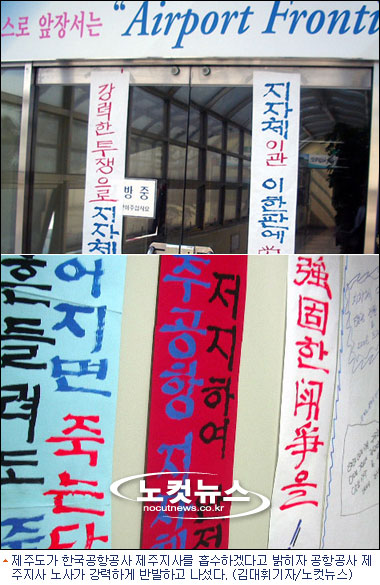 스로 앞장서는 "Airport Fronti
강력한 투쟁으로 지자체
방 중
지자체 이관 이한판에
어지면 죽는다
흔들려도
주공항 지
저지하여
強固한 鬪爭을
노컷뉴스
nocutnews.co.kr
제주도가 한국공항공사 제주지사를 흡수하겠다고 밝히자 공항공사 제
주지사 노사가 강력하게 반발하고 나섰다. (김대휘기자/노컷뉴스)